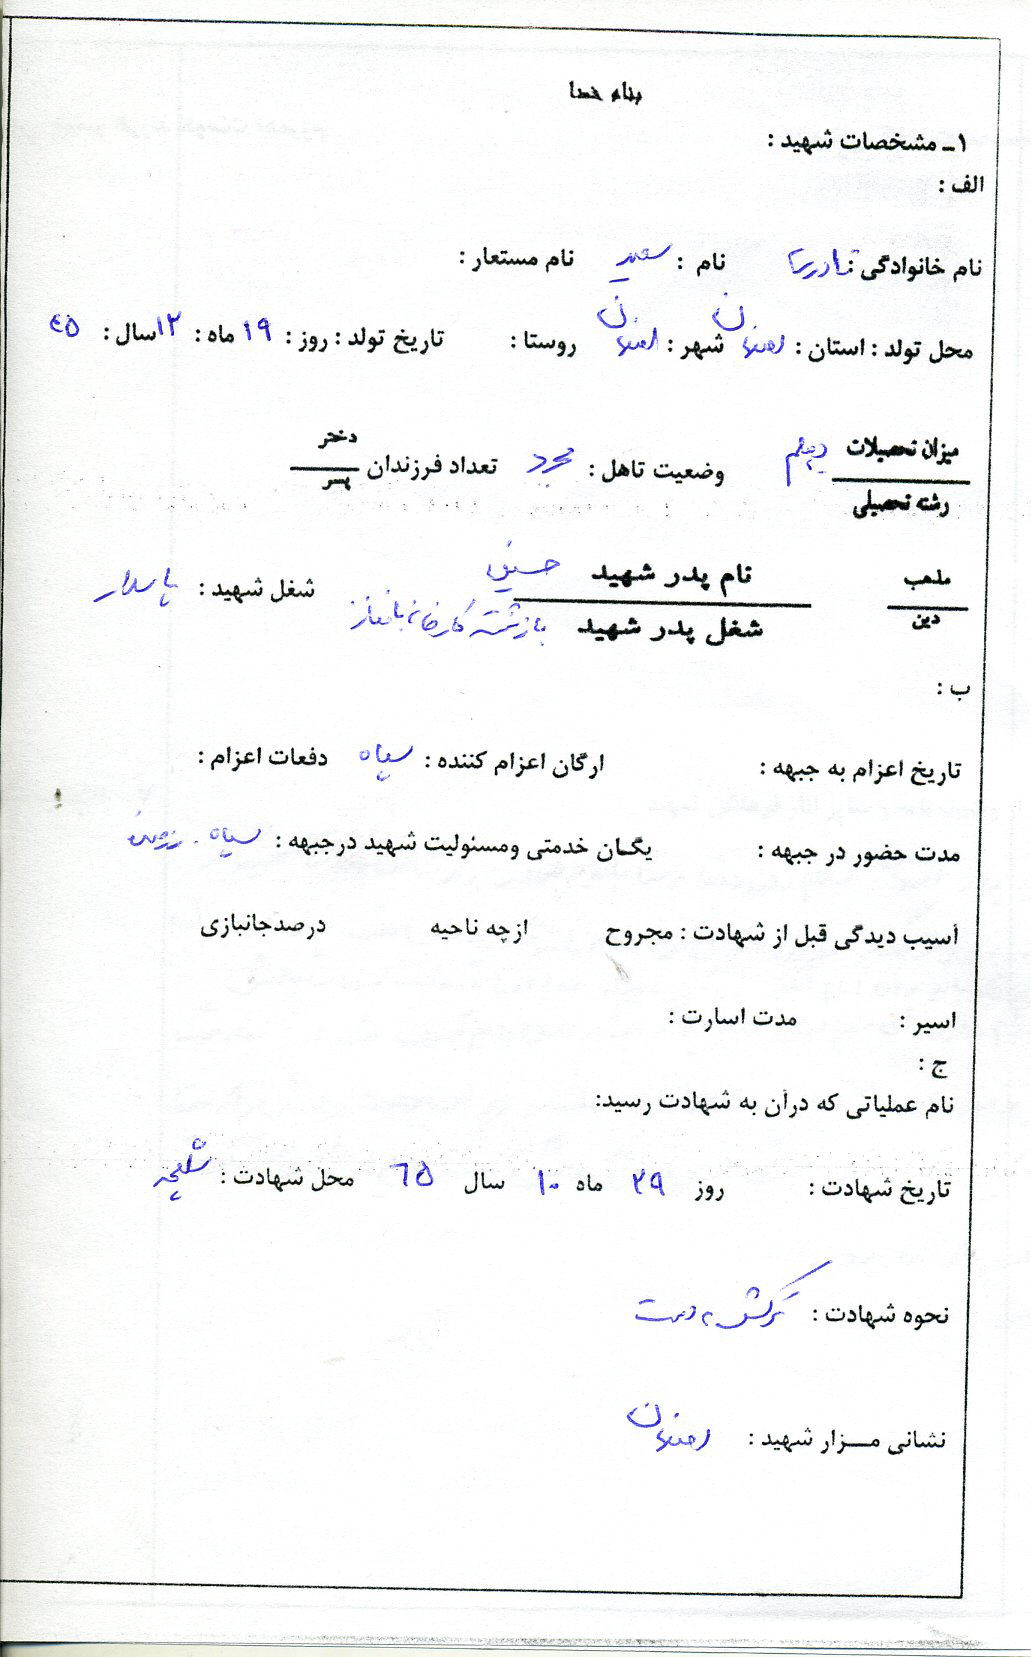 بنام خدا
۱ـ مشخصات شهید :
الف :
نام خانوادگی : نام : سعید نام مستعار :
محل تولد : استان : اصفهان شهر : اصفهان روستا : تاریخ تولد : روز : ۱۹ ماه : ۱۲ سال : ۴۵
میزان تحصیلات دیپلم وضعیت تاهل : مجرد تعداد فرزندان دختر
رشته تحصیلی پسر
مذهب نام پدر شهید شغل شهید : پاسدار
دین شغل پدر شهید بازنشسته کارخانه
ب :
تاریخ اعزام به جبهه : ارگان اعزام کننده : سپاه دفعات اعزام :
مدت حضور در جبهه : یگان خدمتی ومسئولیت شهید درجبهه : سپاه ـ رزمنده
آسیب دیدگی قبل از شهادت : مجروح ازچه ناحیه درصدجانبازی
اسیر : مدت اسارت :
ج :
نام عملیاتی که درآن به شهادت رسید:
تاریخ شهادت : روز ۲۹ ماه ۱۰ سال ۶۵ محل شهادت : شلمچه
نحوه شهادت : ترکش
نشانی مــزار شهید : اصفهان